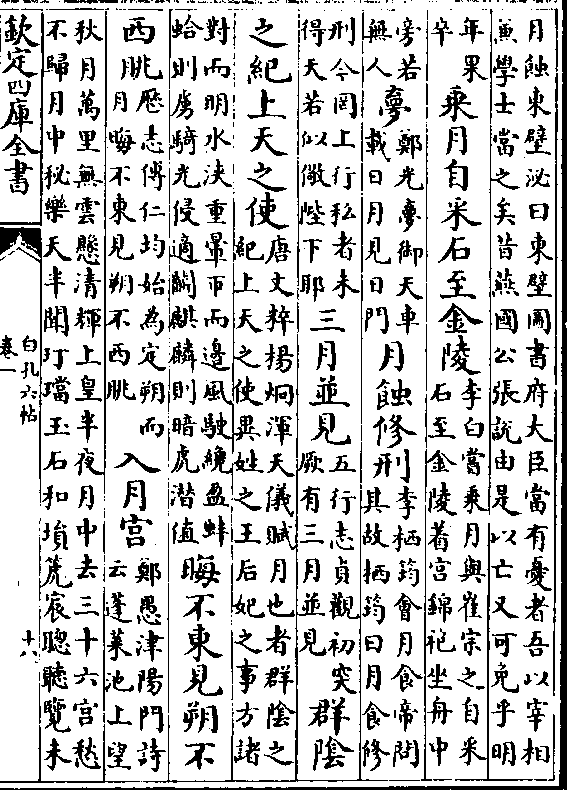 月蝕東壁泌曰東壁圖書府大臣當有憂者吾以宰相
兼學士當之矣昔燕國公張說由是以亡又可免乎明
年果
卒
乘月自采石至金陵
李白嘗乘月與崔宗之自采
石至金陵著宮錦袍坐舟中
旁若
無人
夢
鄭光夢御天車
載日月見日門
月蝕修刑
李栖筠會月食帝問
其故栖筠曰月食修
刑今罔上行私者未
得天若似儆陛下耶
三月並見
五行志貞觀初突
厥有三月並見
群陰
之紀上天之使
唐文粹楊炯渾天儀賦月也者群陰之
紀上天之使異姓之王后妃之事方諸
對而明水浹重暈帀而邊風駛纔盈蚌
蛤則虜騎先侵適鬭麒麟則暗虎潜值
晦不東見朔不
西朓
歷志傅仁均始為定朔而
月晦不東見朔不西朓
入月宮
鄭愚津陽門詩
云蓬萊池上望
秋月萬里無雲懸清輝上皇半夜月中去三十六宮愁
不歸月中秘樂天半聞玎璫玉石和塤箎宸聰聽覽未
欽定四庫全書
白孔六帖
卷一